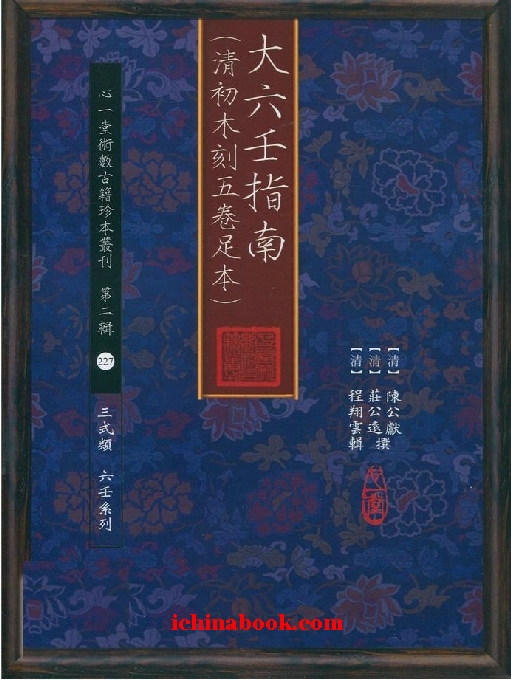 大六壬指南
(清初木刻五卷足本)
【清】陳公獻
【清】莊公遠 撰
【清】程翔雲輯
心一堂術數古籍珍本叢刊 第二輯
227
三式類 六壬系列
ichinabook.com